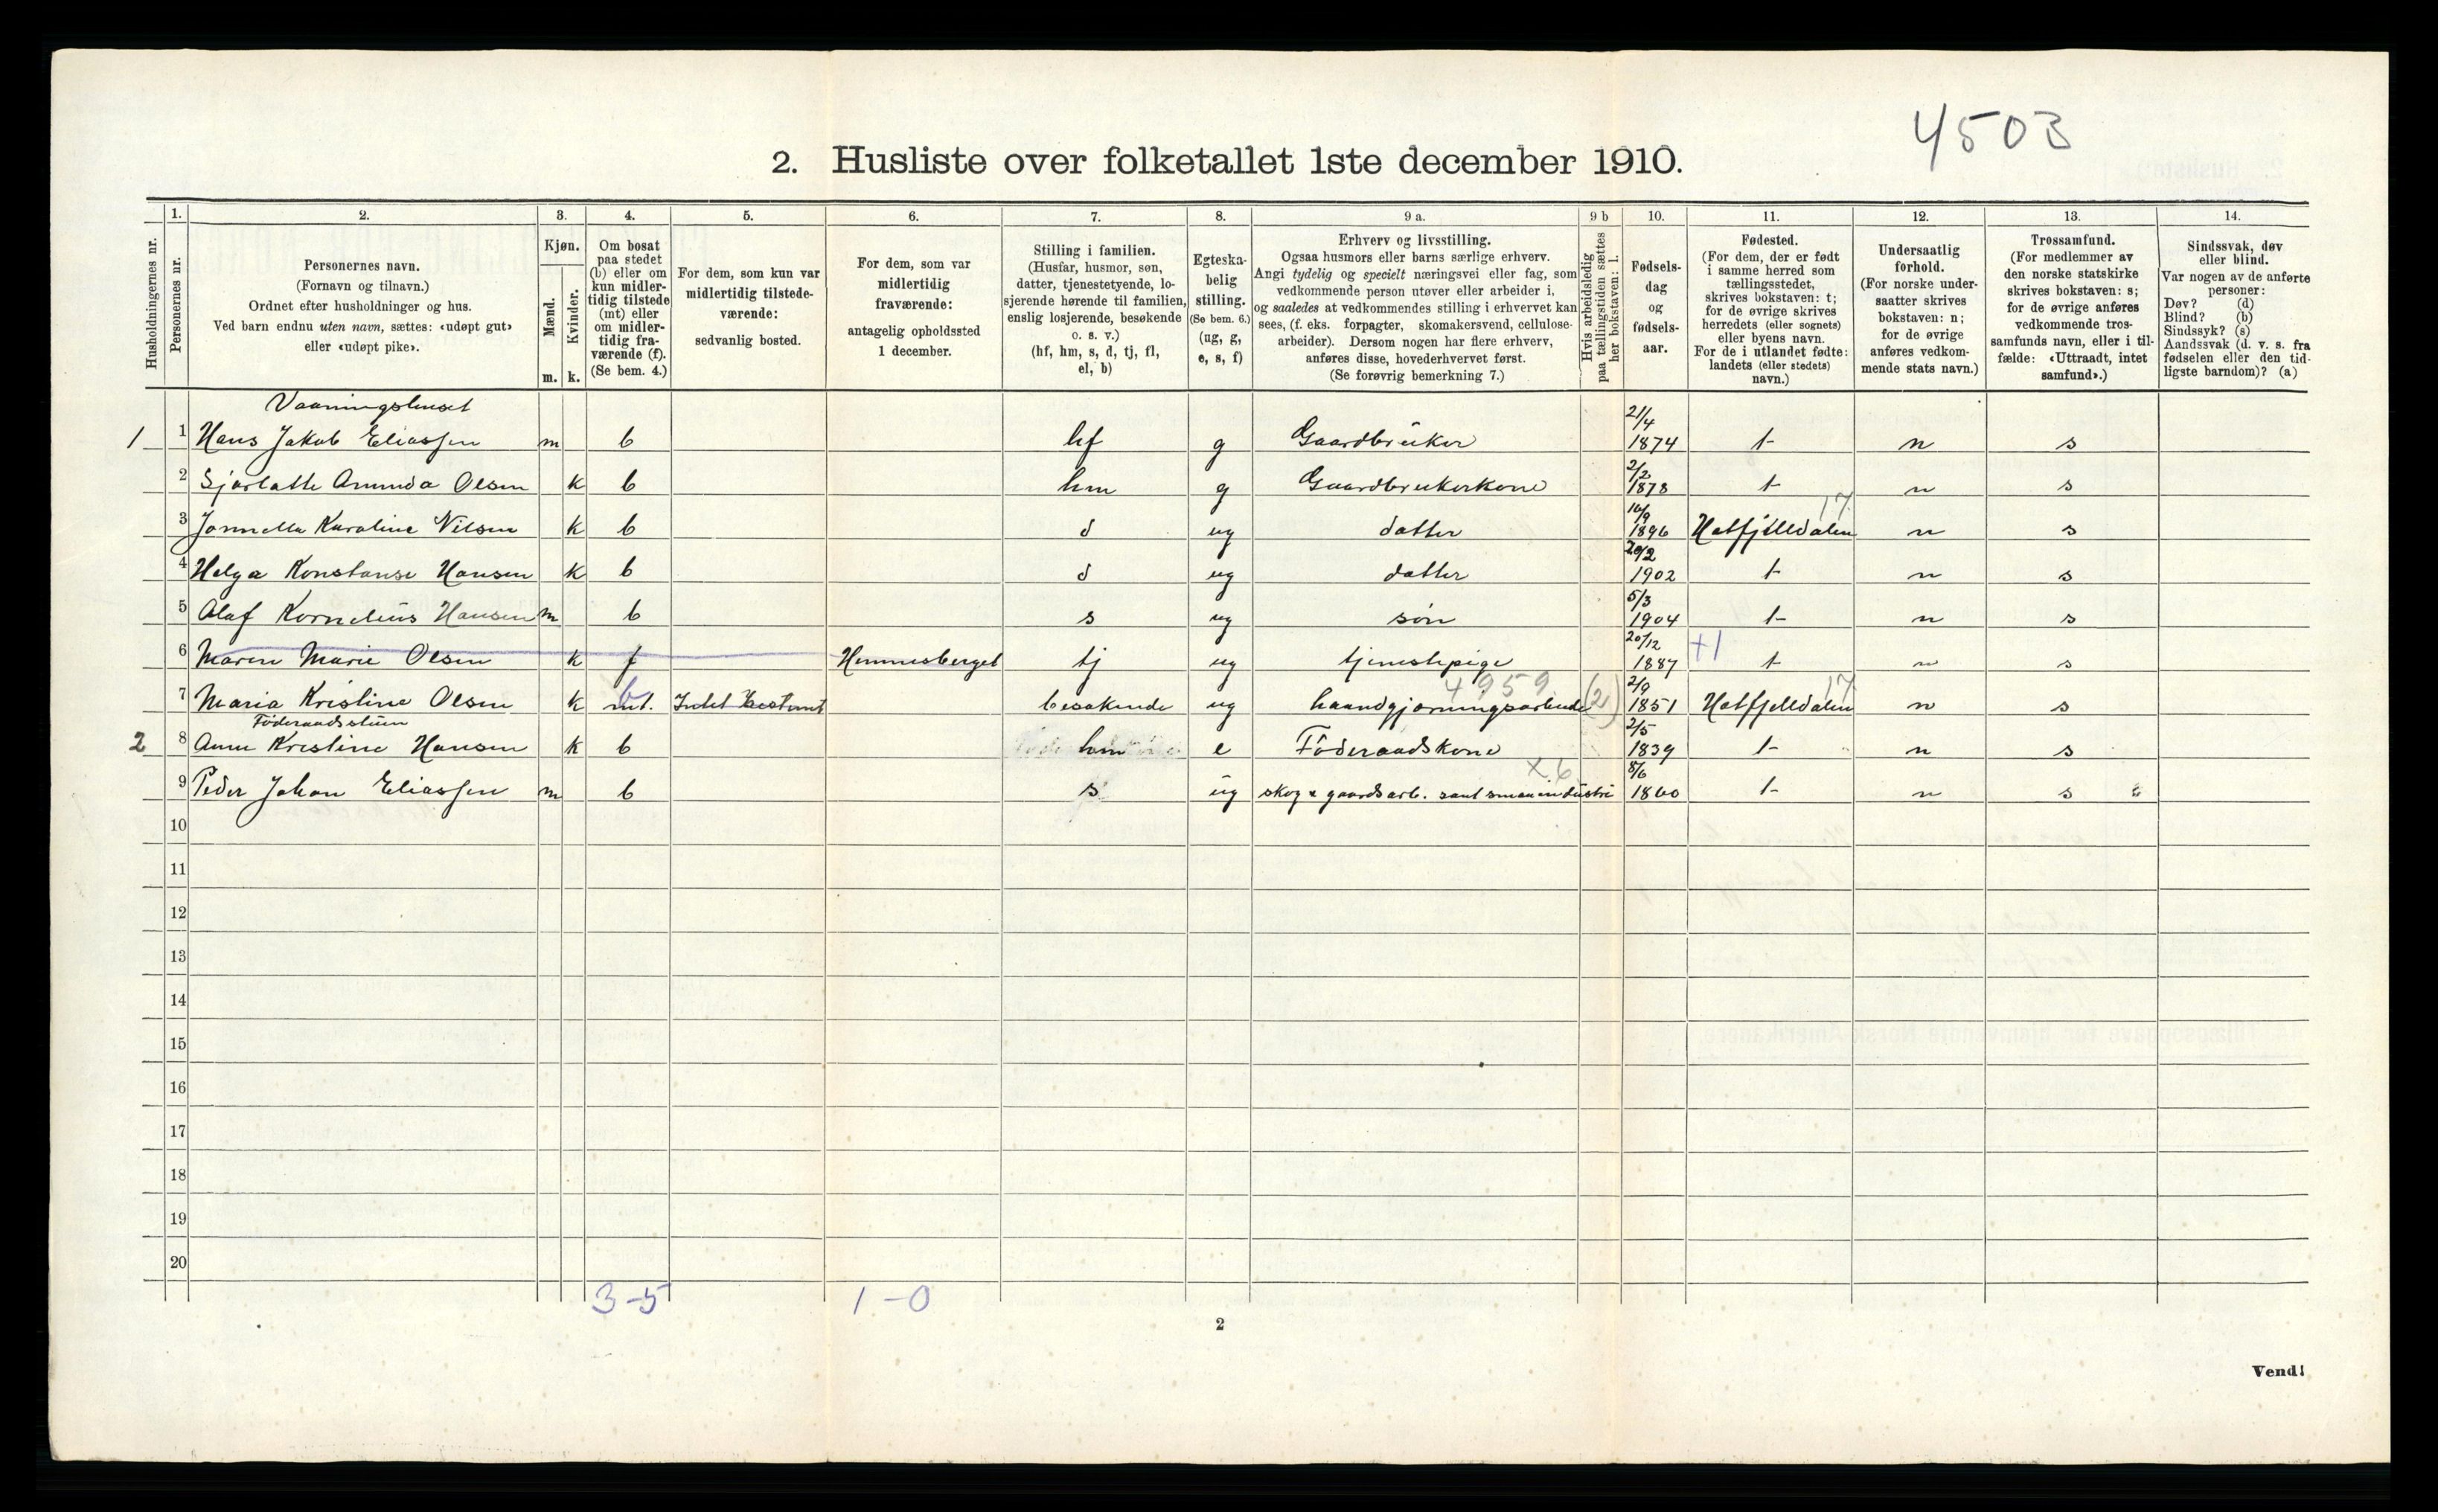 4503
2. Husliste over folketallet 1ste december 1910.
Husholdningernes nr.
1.
Personernes nr.
2.
Personernes navn.
(Fornavn og tilnavn.)
Ordnet efter husholdninger og hus.
Ved barn endnu uten navn, sættes: «udøpt gut»
eller «udøpt pike».
3.
Kjøn.
Mænd.
Kvinder.
m. k.
4.
Om bosat
paa stedet
(b) eller om
kun midler-
tidig tilstede
(mt) eller
om midler-
tidig fra-
værende (f).
(Se bem. 4.)
5.
For dem, som kun var
midlertidig tilstede-
værende:
sedvanlig bosted.
6.
For dem, som var
midlertidig
fraværende:
antagelig opholdssted
1 december.
7.
Stilling i familien.
(Husfar, husmor, søn,
datter, tjenestetyende, lo-
sjerende hørende til familien,
enslig losjerende, besøkende
o. s. v.)
(hf, hm, s, d, tj, fl,
el, b)
8.
Egteska-
belig
stilling.
(Se bem. 6.)
(ug, g,
e, s, f)
9 a.
Erhverv og livsstilling.
Ogsaa husmors eller barns særlige erhverv.
Angi tydelig og specielt næringsvei eller fag, som
vedkommende person utøver eller arbeider i,
og saaledes at vedkommendes stilling i erhvervet kan
sees, (f. eks. forpagter, skomakersvend, cellulose-
arbeider). Dersom nogen har flere erhverv,
anføres disse, hovederhvervet først.
(Se forøvrig bemerkning 7.)
9 b
Hvis arbeidsledig
paa tællingstiden sættes
her bokstaven: l.
10.
Fødsels-
dag
og
fødsels-
aar.
11.
Fødested.
(For dem, der er født
i samme herred som
tællingsstedet,
skrives bokstaven: t;
for de øvrige skrives
herredets (eller sognets)
eller byens navn.
For de i utlandet fødte:
landets (eller stedets)
navn.)
12.
Undersaatlig
forhold.
(For norske under-
saatter skrives
bokstaven: n;
for de øvrige
anføres vedkom-
mende stats navn.)
13.
Trossamfund.
(For medlemmer av
den norske statskirke
skrives bokstaven: s;
for de øvrige anføres
vedkommende tros-
samfunds navn, eller i til-
fælde: «Uttraadt, intet
samfund».)
14.
Sindssvak, døv
eller blind.
Var nogen av de anførte
personer:
Døv? (d)
Blind? (b)
Sindssyk? (s)
Aandssvak (d. v. s. fra
fødselen eller den tid-
ligste barndom)? (a)
Vaaningshuset
1 1 Hans Jakob Eliassen m b hf g Gaardbruker 21/4 1874 t n s
2 Amunda Olsen k b hm g Gaardbrukerkone 2/2 1878 t n s
3 Karoline Nilsen k b d ug datter 16/9 1896 Hatfjelldalen 17 n s
4 Helga Konstanse Hansen k b d ug datter 20/2 1902 t n s
5 Olaf Kornelius Hansen m b s ug søn 5/3 1904 t n s
6 Maren Marie Olsen k f Hemnesberget tj ug tjenestepige 20/12 1887 +1 t n s
7 Maria Kristine Olsen k mt. b Intet bestemt besøkende ug haandgjærningsarbeide 4959 (2) 2/9 1851 Hatfjelldalen 17 n s
Föderaadsstuen
2 8 Anne Kristine Hansen k b hm e Föderaadskone 2/5 1839 t n s
9 Peder Johan Eliassen m b s ug skog & gaardsarb. samt smaaindustri x6 8/6 1860 t n s
10
11
12
13
14
15
16
17
18
19
20
3-5 1-0
2
Vend!